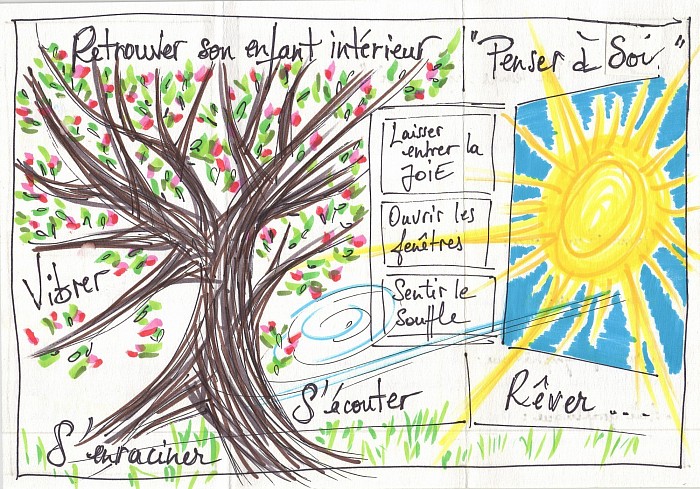 Retrouver son enfant intérieur
"Penser à Soi"
Laisser
entrer la
JOIE
Ouvrir les
fenêtres
Sentir le
Souffle
Vibrer
S'écouter
Rêver ....
S'enraciner